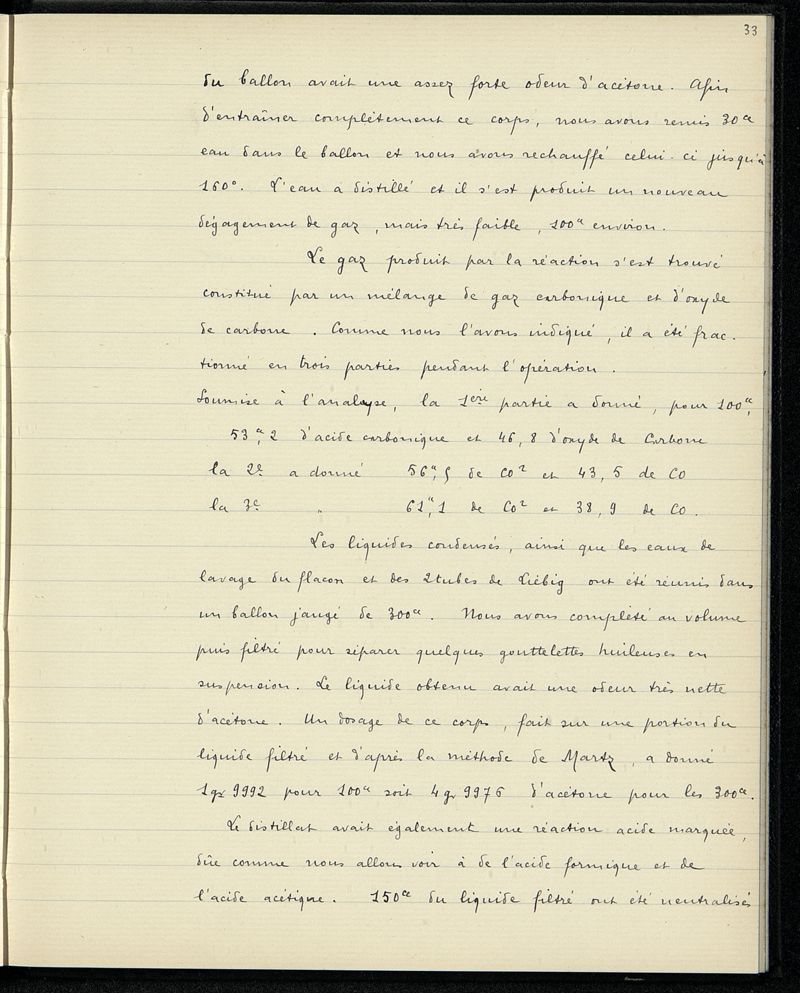 33
du ballon avait une assez forte odeur d'acétone. Afin
d'entraîner complètement ce corps, nous avons remis 30cc
eau dans le ballon et nous avons rechauffé celui-ci jusqu'à
160°. L'eau a distillé et il s'est produit un nouveau
dégagement de gaz, mais très faible, 100cc environ.
Le gaz produit par la réaction s'est trouvé
constitué par un mélange de gaz carbonique et d'oxyde
de carbone. Comme nous l'avons indiqué, il a été frac-
tionné en trois parties pendant l'opération.
Soumise à l'analyse, la 1ère partie a donné, pour 100cc,
53cc,2 d'acide carbonique et 46,8 d'oxyde de Carbone
la 2e a donné 56cc,5 de CO2 et 43,5 de CO
la 3e " 61cc,1 de CO2 et 38,9 de CO.
Les liquides condensés, ainsi que les eaux de
lavage du flacon et des 2 tubes de Liébig ont été réunis dans
un ballon jaugé de 300cc. Nous avons complété au volume
puis filtré pour séparer quelques gouttelettes huileuses en
suspension. Le liquide obtenu avait une odeur très nette
d'acétone. Un dosage de ce corps, fait sur une portion du
liquide filtré et d'après la méthode de Martz, a donné
1gr 9992 pour 100cc soit 4gr 9976 d'acétone pour les 300cc.
Le distillat avait également une réaction acide marquée,
dûe comme nous allons voir à de l'acide formique et de
l'acide acétique. 150cc du liquide filtré ont été neutralisés